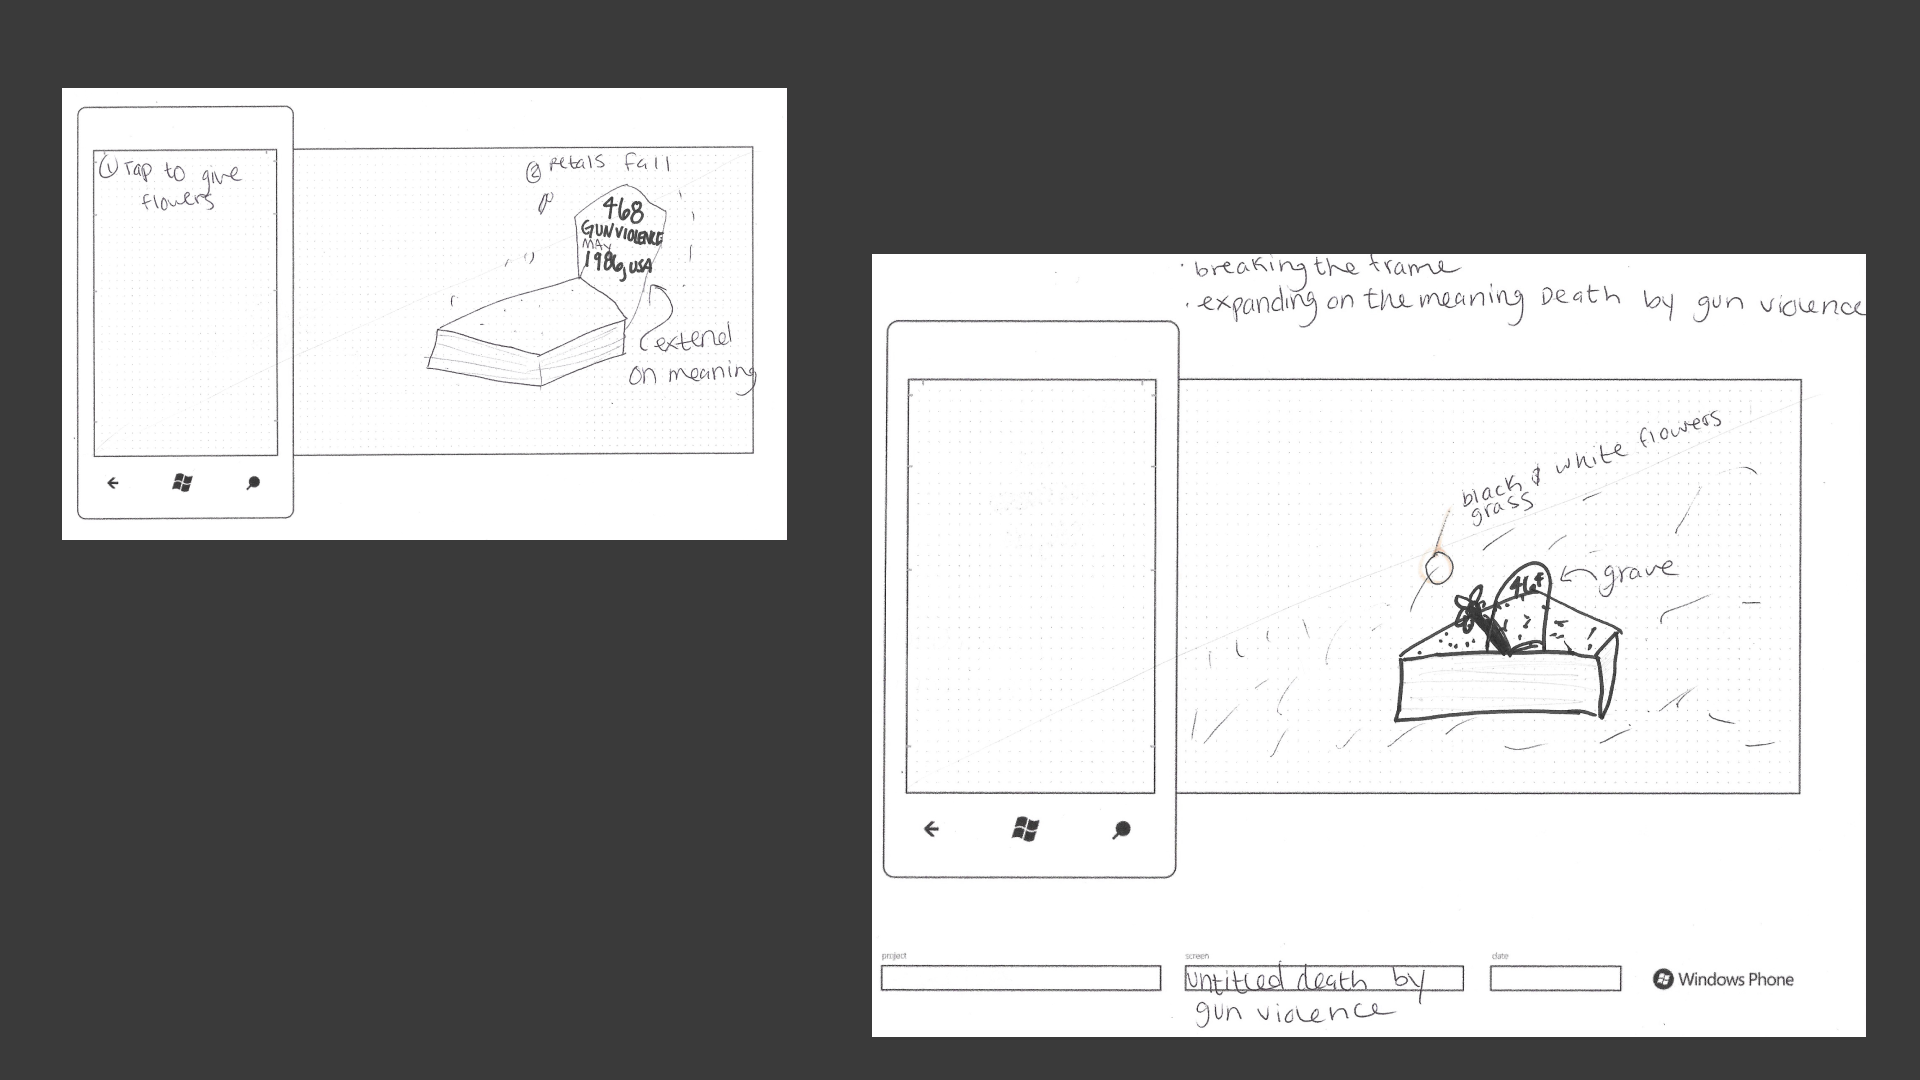 ① Tap to give
flowers
② petals fall
468
GUN VIOLENCE
MAY
1986, USA
extend
on meaning
· breaking the frame
· expanding on the meaning Death by gun violence
black & white flowers
grass
464
grave
project
screen
date
untitled death by
gun violence
Windows Phone